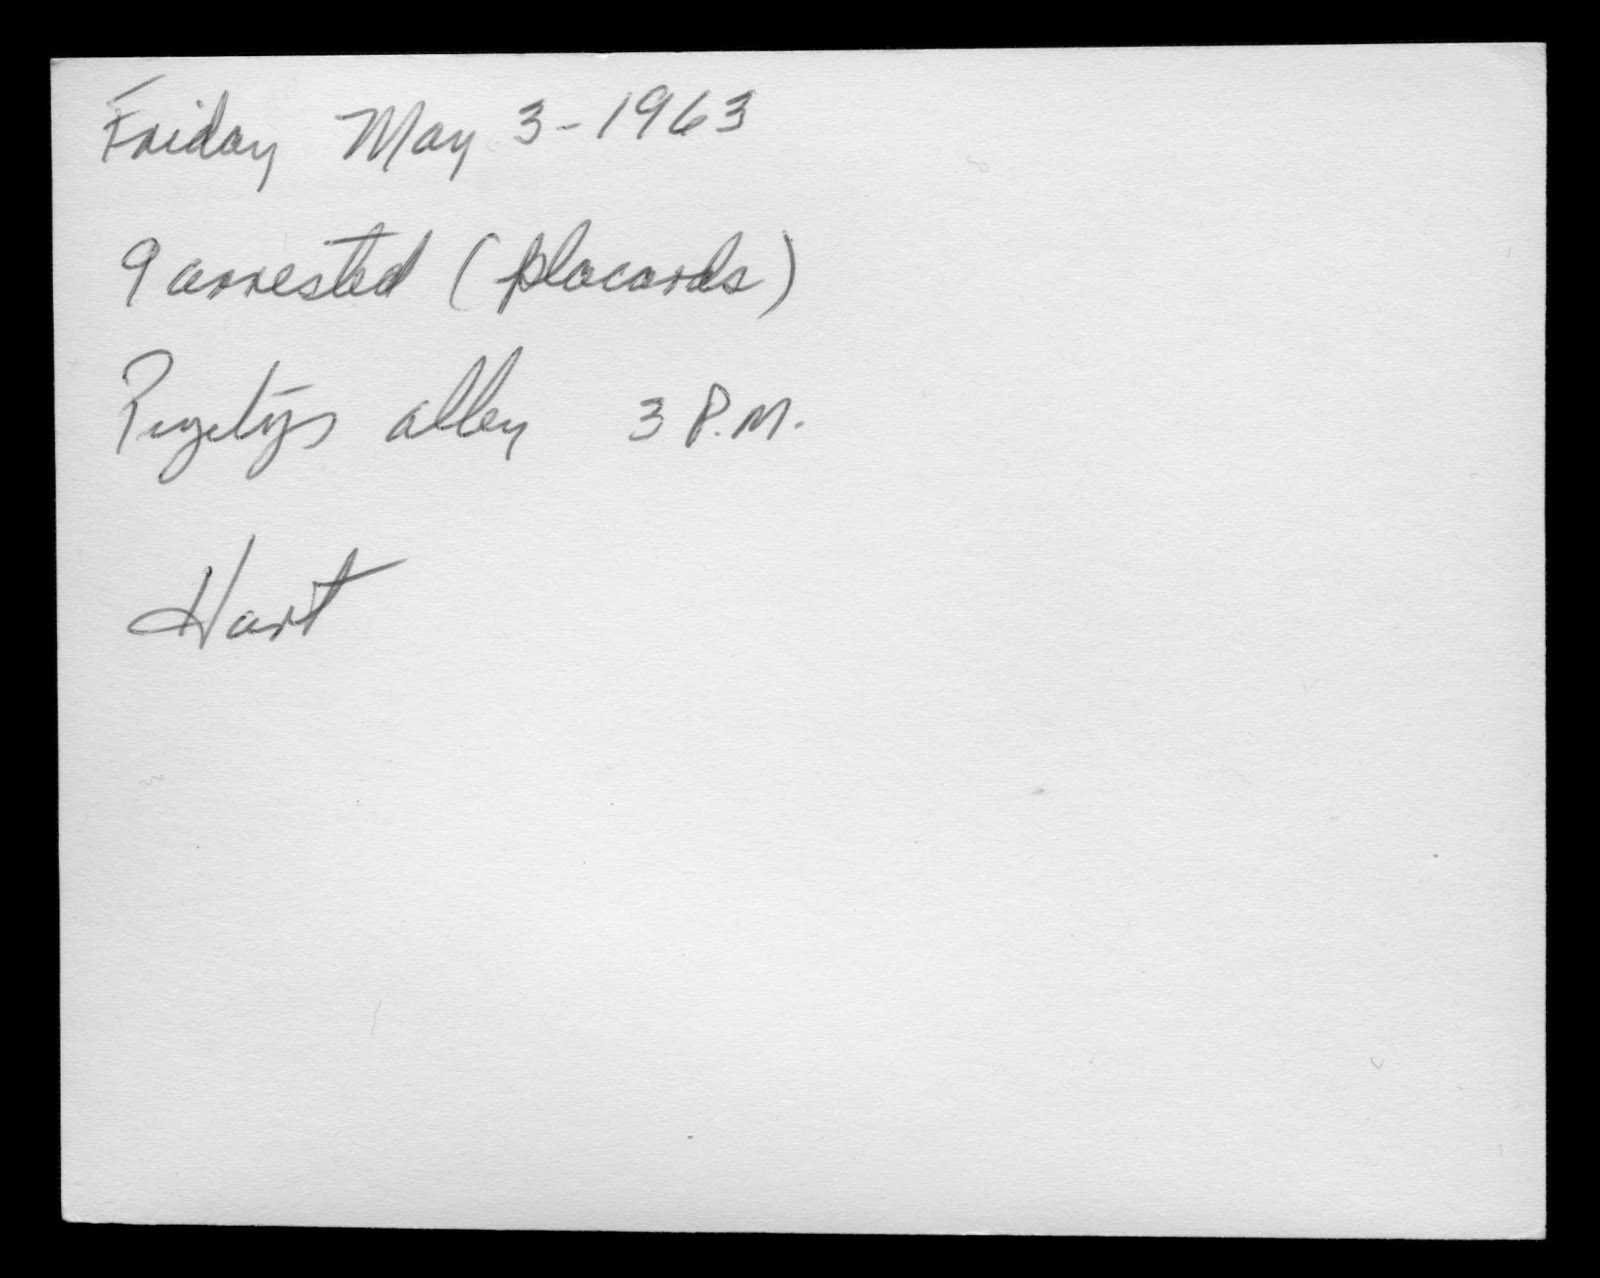 Friday May 3-1963
9 arrested (placards)
alley 3 P.M.
Hart